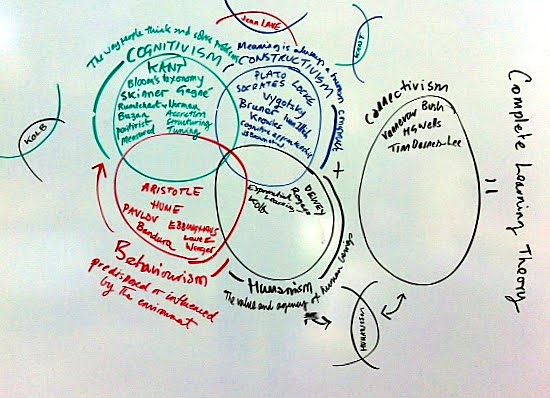 The way people think and solve problems
COGNITIVISM
KANT
Bloom's taxonomy
Skinner Gagné
Rumelhart & Norman
Buzan Accretion
positivist Structuring
Tuning
Jean LAVE
KANT
Meaning is always a human construct
CONSTRUCTIVISM
PLATO
SOCRATES LOCKE
Vygotsky
Bruner
Knowles
cognitive apprenticeship
KOLB
ARISTOTLE
HUME
PAVLOV EBBINGHAUS
Bandura Lave &
Wenger
Behaviourism
predisposed or influenced
by the environment
DEWEY
Experiential Rogers
Learning
Kolb
Humanism
The value and agency of human beings
HUMANISM
+
Connectivism
Vannevar Bush
HG Wells
Tim Berners-Lee
=
Complete Learning Theory